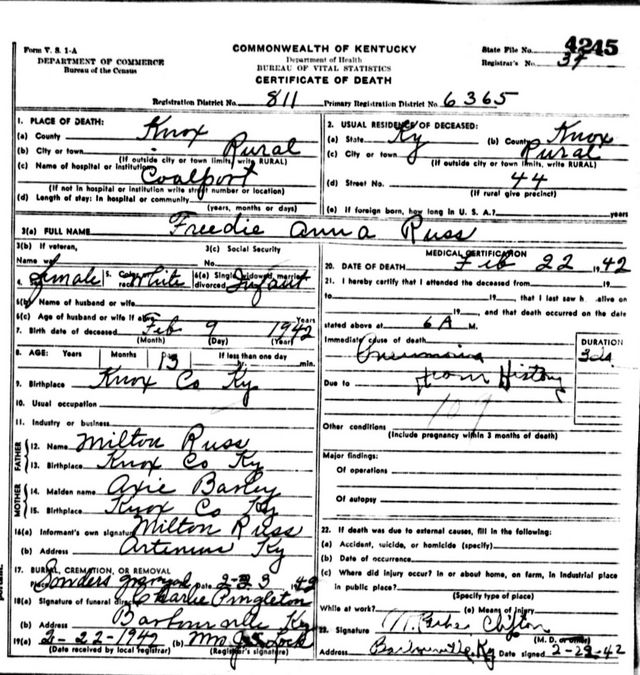 Form V. S. 1-A
DEPARTMENT OF COMMERCE
Bureau of the Census
COMMONWEALTH OF KENTUCKY
Department of Health
BUREAU OF VITAL STATISTICS
CERTIFICATE OF DEATH
State File No. 4245
Registrar's No. 37
Registration District No. 811 Primary Registration District No. 6365
1. PLACE OF DEATH:
(a) County Knox
(b) City or town Rural
(If outside city or town limits, write RURAL)
(c) Name of hospital or institution Coalport
(If not in hospital or institution write street number or location)
(d) Length of stay: In hospital or community
(years, months or days)
2. USUAL RESIDENCE OF DECEASED:
(a) State Ky (b) County Knox
(c) City or town Rural
(If outside city or town limits, write RURAL)
(d) Street No. 44
(If rural give precinct)
(e) If foreign born, how long in U. S. A.? years
3(a) FULL NAME Freedie Anna Russ
3(b) If veteran,
Name war
3(c) Social Security
4. female 5. Color or race White 6(a) Single, widowed, married, divorced Infant
6(b) Name of husband or wife
6(c) Age of husband or wife if alive Years
7. Birth date of deceased Feb 9 1942
(Month) (Day) (Year)
8. AGE: Years Months 13 If less than one day
hr. min.
9. Birthplace Knox Co Ky
10. Usual occupation
11. Industry or business
FATHER
12. Name Milton Russ
13. Birthplace Knox Co Ky
MOTHER
14. Maiden name Axie Barley
15. Birthplace Knox Co Ky
16(a) Informant's own signature Milton Russ
(b) Address Artemus Ky
17. BURIAL, CREMATION, OR REMOVAL
Place Date 2-23 1942
18(a) Signature of funeral director Charlie Pingleton
(b) Address Barbourville Ky
19(a) 2-22-1942 (b) Mrs
(Date received by local registrar) (Registrar's signature)
MEDICAL CERTIFICATION
20. DATE OF DEATH Feb 22 1942
21. I hereby certify that I attended the deceased from 19
to 19 , that I last saw h alive on
19 , and that death occurred on the date
stated above at 6 A M.
Immediate cause of death
Pneumonia
DURATION
3 ds
Due to from History
Other conditions
(Include pregnancy within 3 months of death)
Major findings:
Of operations
Of autopsy
22. If death was due to external causes, fill in the following:
(a) Accident, suicide, or homicide (specify)
(b) Date of occurrence
(c) Where did injury occur? In or about home, on farm, in industrial place
in public place?
(Specify type of place)
While at work? (e) Means of injury
23. Signature Clifton
(M. D. or other)
Address Barbourville, Ky Date signed 2-22-42